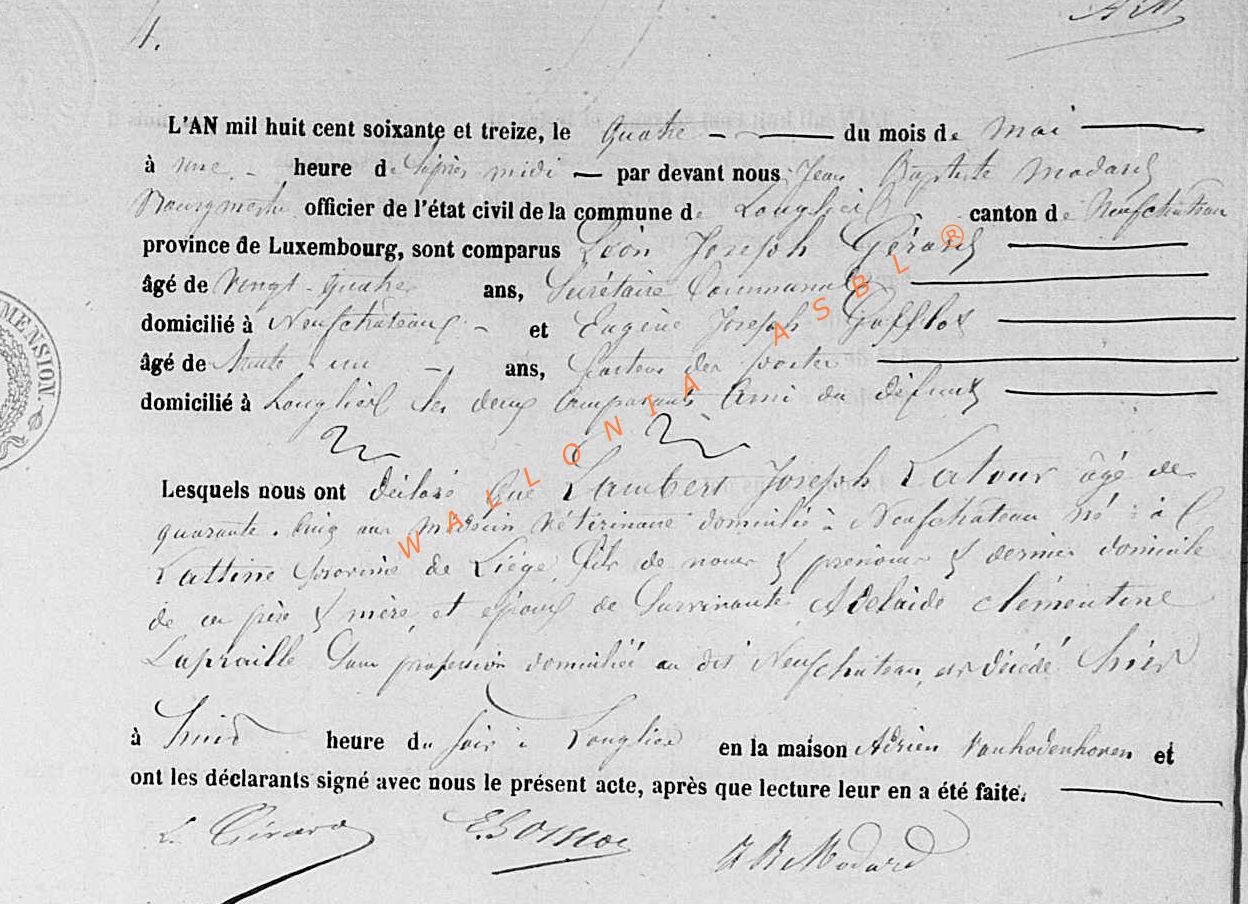 4.
L'AN mil huit cent soixante et treize, le quatre du mois de mai
à une heure de l'après midi par devant nous Jean Baptiste Modard
Bourgmestre officier de l'état civil de la commune de Longlier canton de Neufchateau
province de Luxembourg, sont comparus Léon Joseph Gérard
âgé de vingt-quatre ans, Secrétaire Communal
domicilié à Neufchateau et Eugène Joseph
âgé de trente un ans, facteur des postes
domicilié à Longlier les deux comparants ami du défunt
Lesquels nous ont déclaré que Lambert Joseph Latour âgé de
quarante cinq ans médecin vétérinaire domicilié à Neufchateau né à
Lattine province de Liége, fils de noms & prénoms & dernier domicile
de ces père & mère, et époux de Survivante Adelaide Clémentine
Lapraille sans profession domiciliée au dit Neufchateau, est décédé hier
à huit heure du soir à Longlier en la maison Adrien Vanhodenhoven et
ont les déclarants signé avec nous le présent acte, après que lecture leur en a été faite.
L. Gérard
J B Modard
MENSION.
WALLONIA ASBL ®